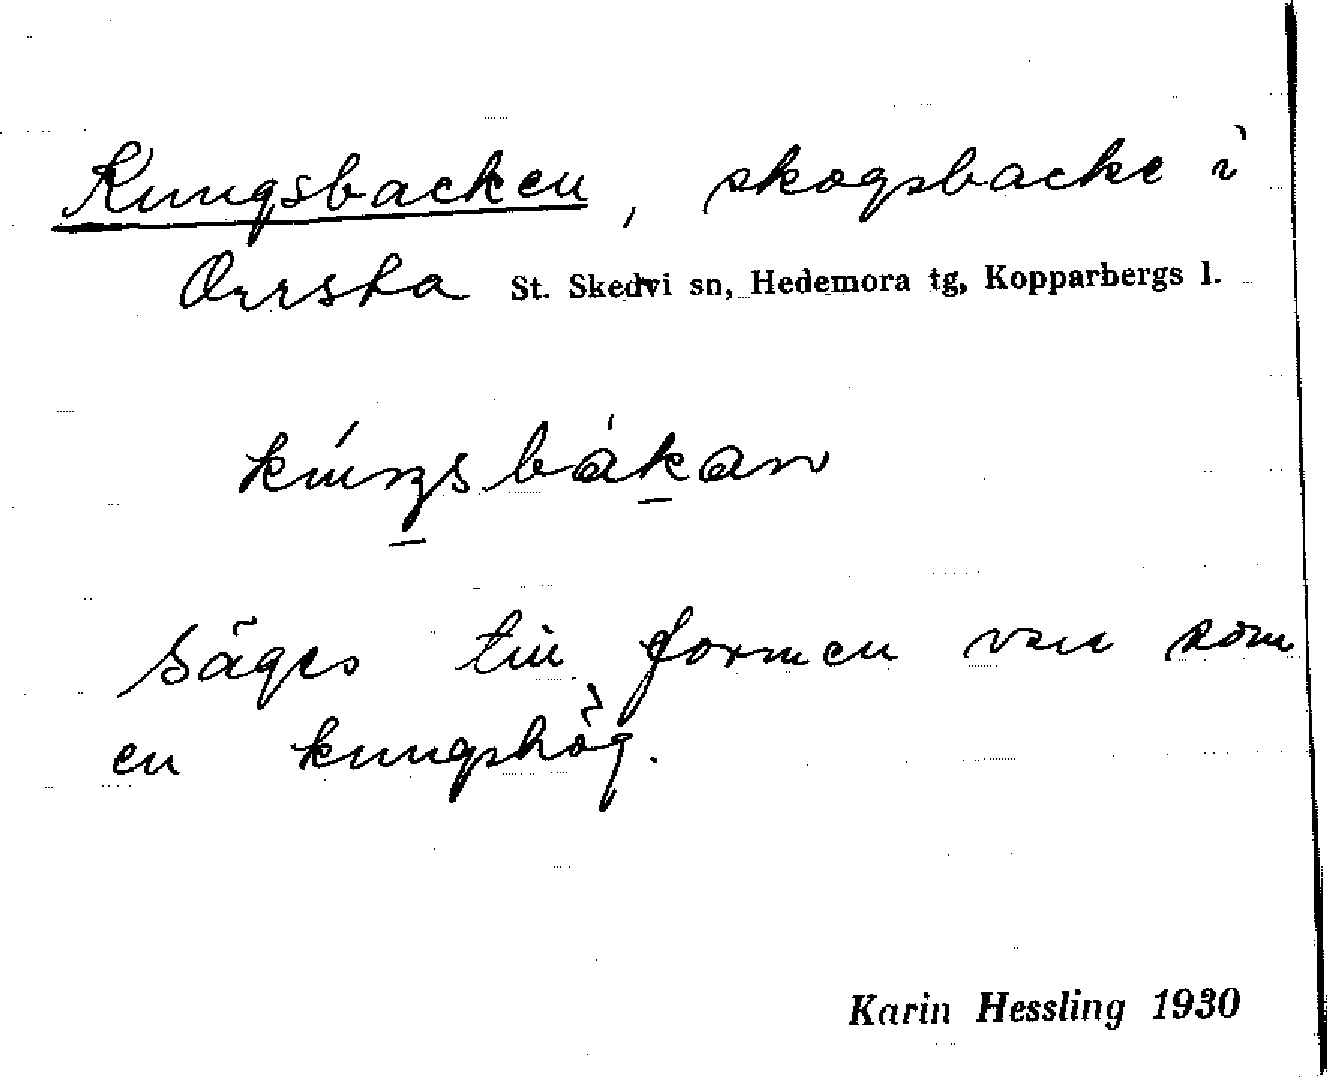 Kungsbacken, skogsbacke i
Orrsta St. Skedvi sn, Hedemora tg, Kopparbergs l.
kúŋsbákan
Säges till formen vara som
en kungshög.
Karin Hessling 1930